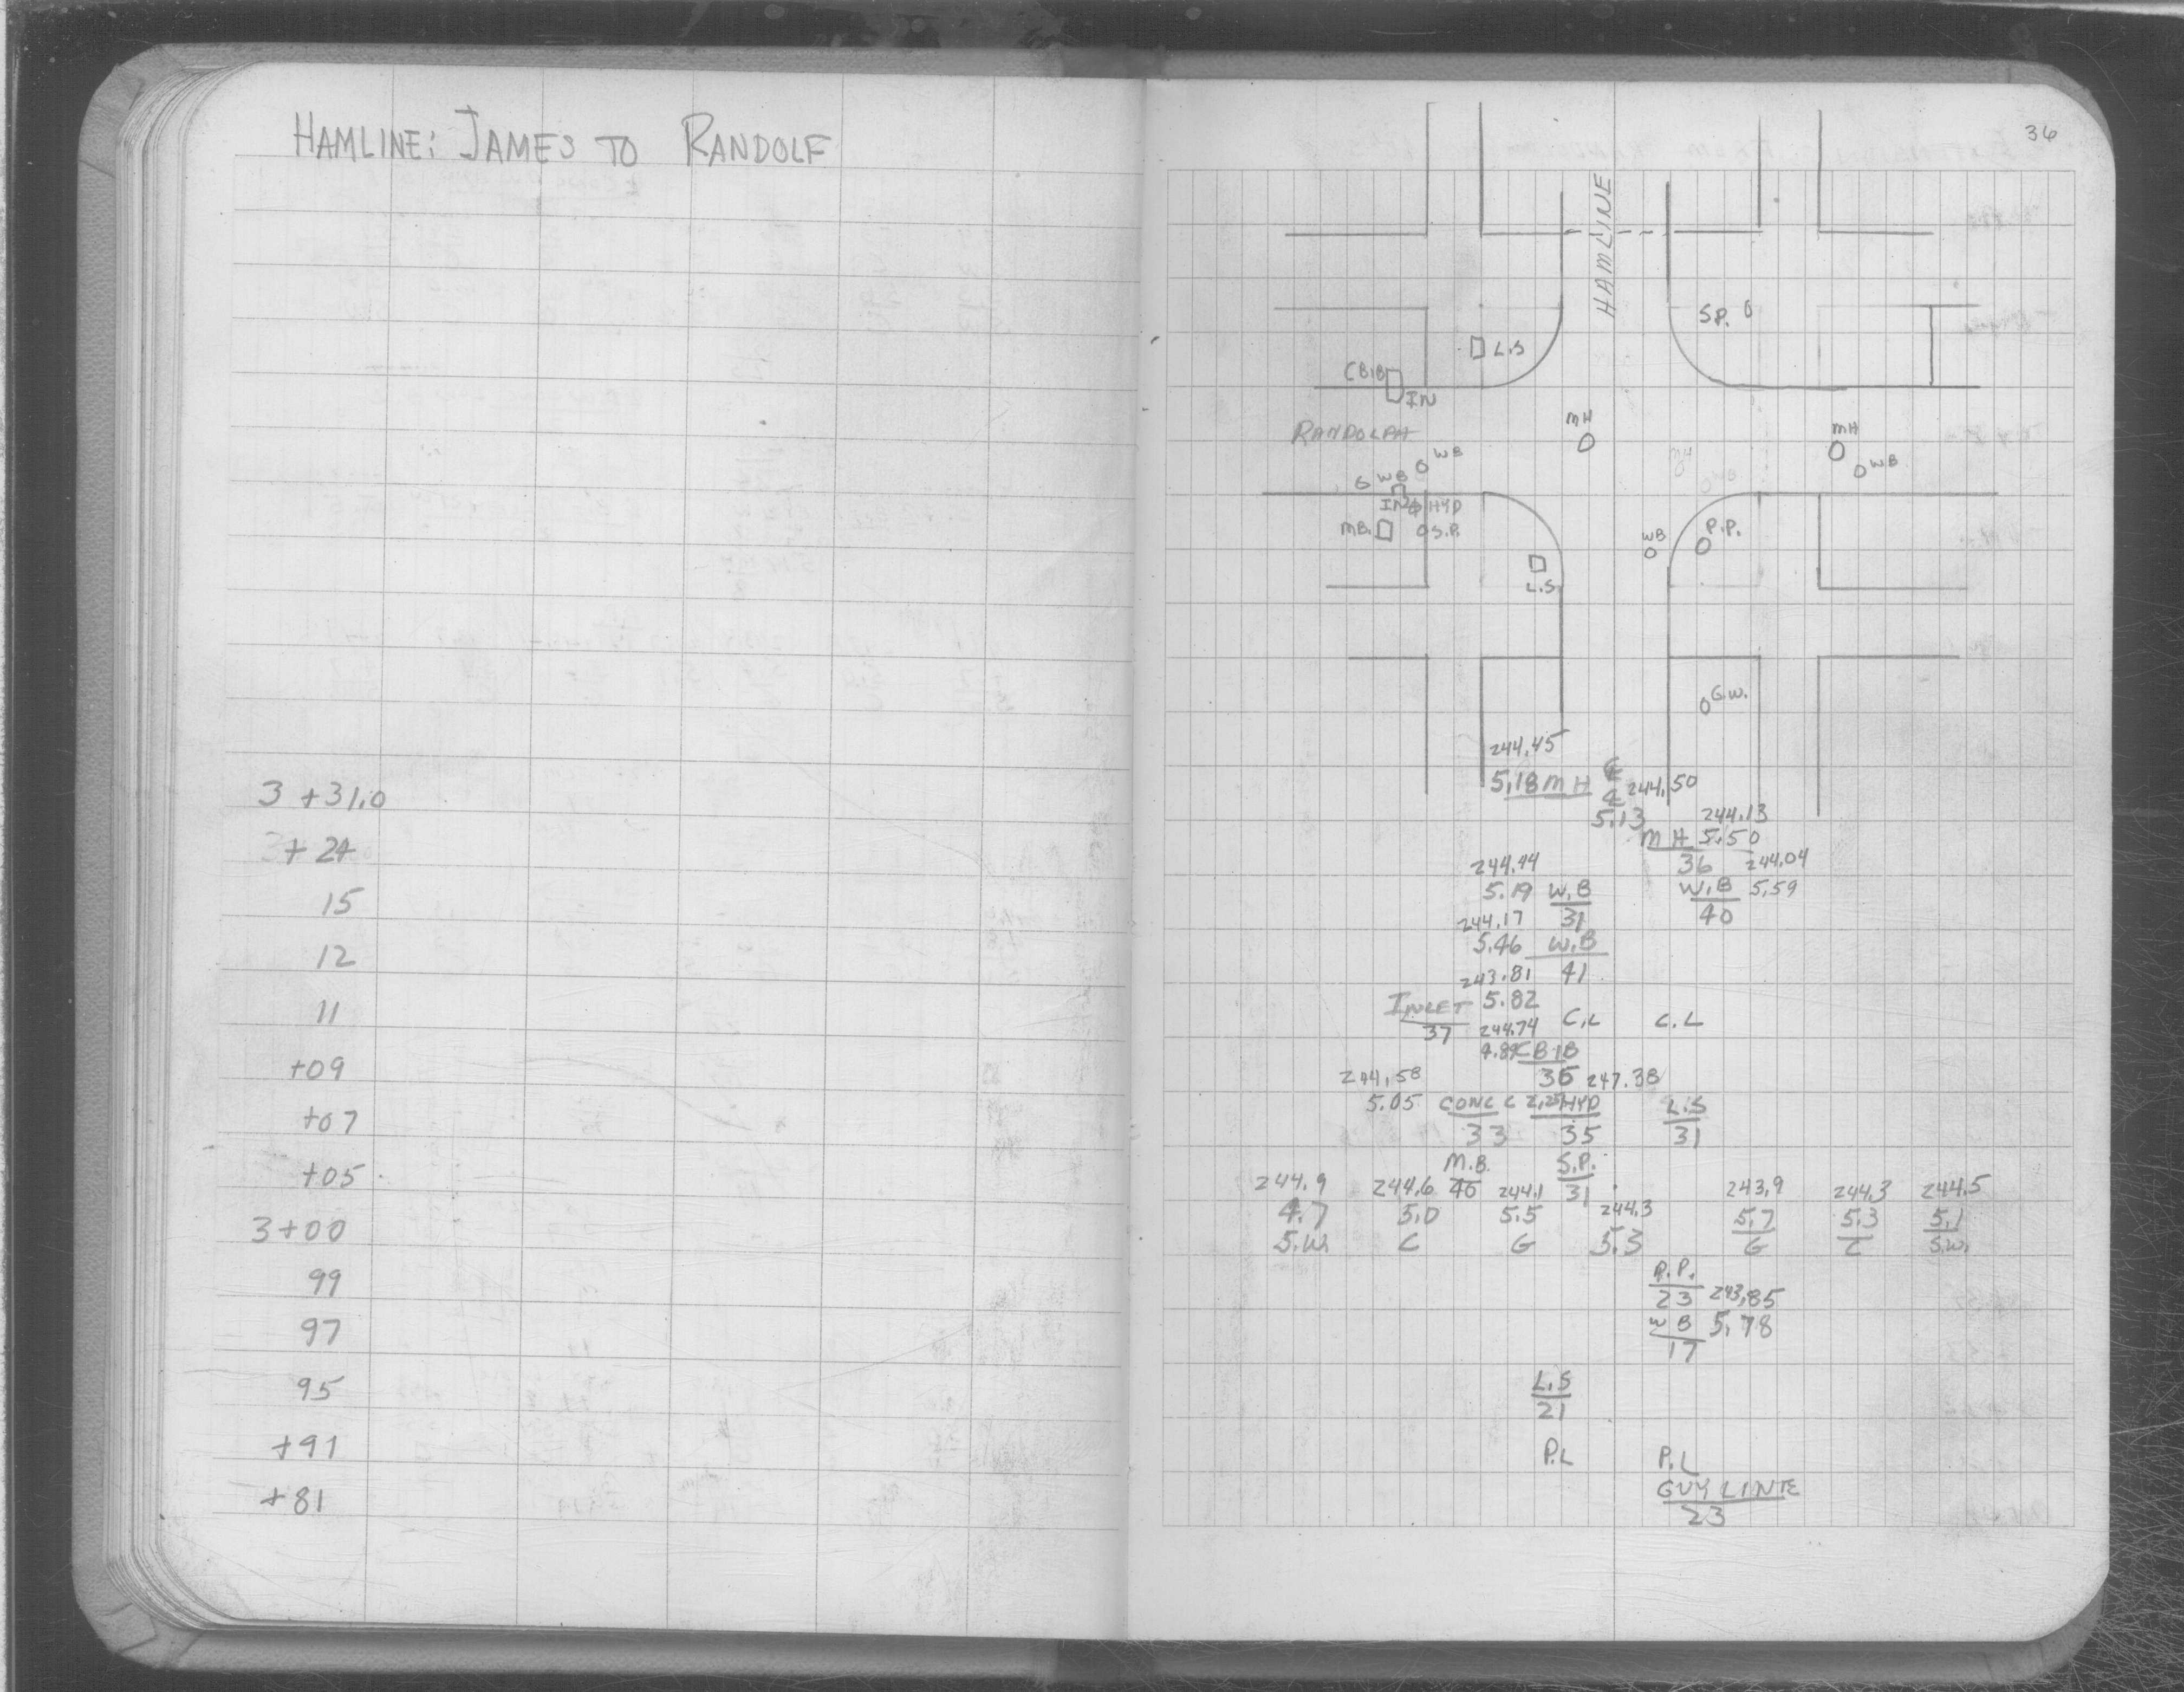 HAMLINE: JAMES TO RANDOLF
36
HAMLINE
S.P.
L.S
CB1B
IN
RANDOLPH
MH
MH
WB
WB
G WB
IN HYD
MB. S.P.
MH
WB
WB P.P.
L.S
G.W.
244.45
3+31.0 5.18 MH ℄ 244.50
℄
5.13 244.13
+24 MH 5.50
244.44 36 244.04
15 5.19 W.B W.B 5.59
244.17 31 40
12 5.46 W.B
243.81 41
11 INLET 5.82 C.L C.L
37 244.74
+09 4.89 CB1B
244.58 36 247.38
+07 5.05 CONC C 2.25 HYD L.S
33 35 31
+05 M.B. S.P.
244.9 244.6 40 244.1 31 244.3 243.9 244.3 244.5
3+00 4.7 5.0 5.5 5.3 5.7 5.3 5.1
S.W. C G G C S.W.
99 P.P.
23 243.85
97 WB 5.78
17
95 L.S
21
+91 P.L P.L
+81 GUY LINE
23